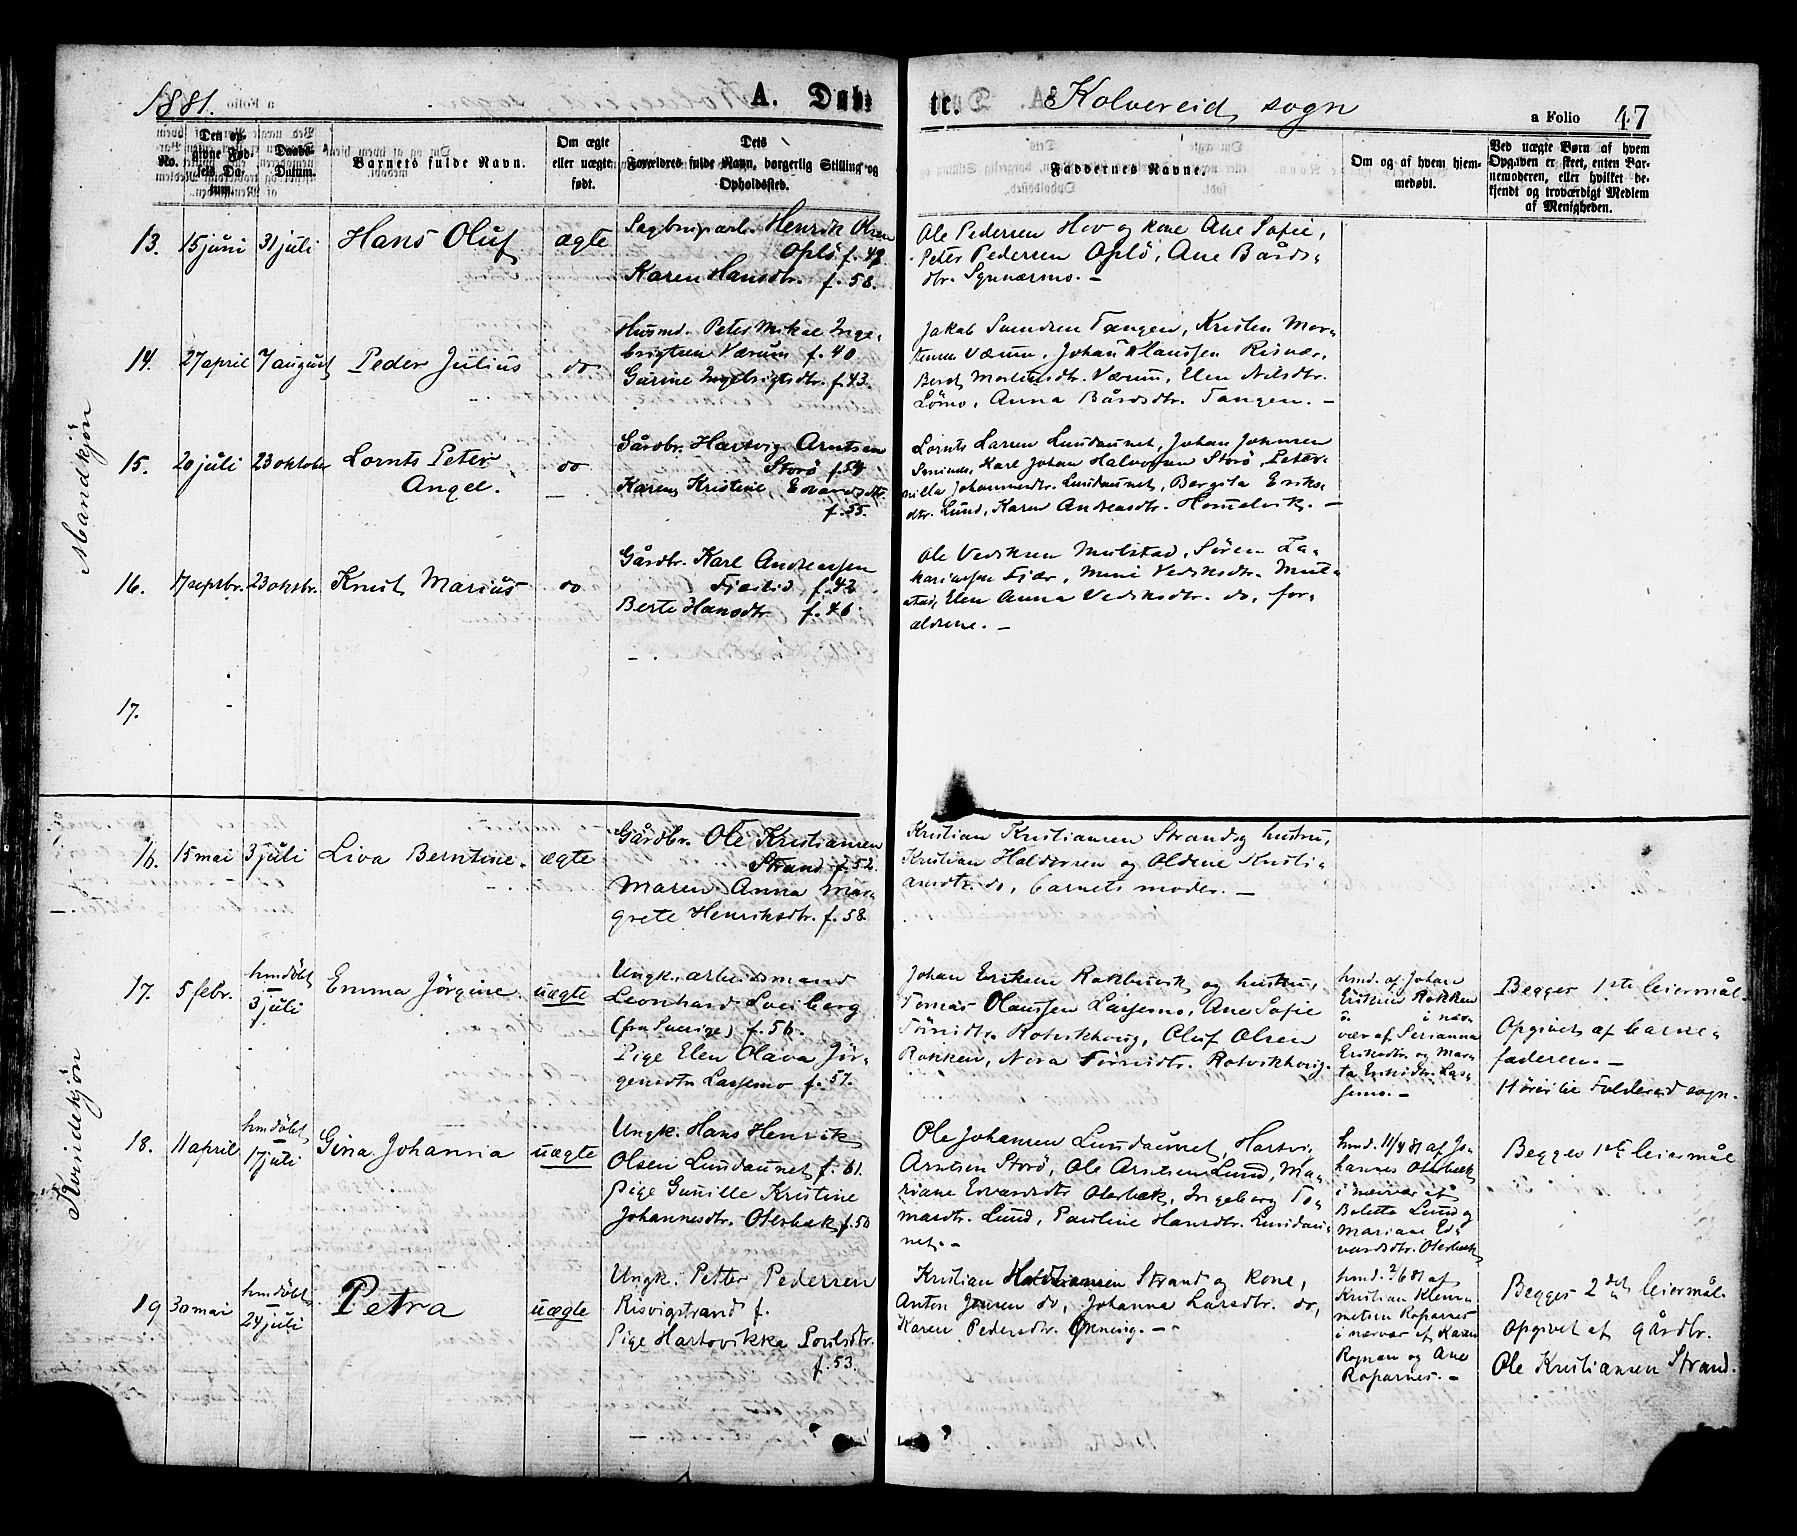 1881.
A. Døbte.
Kolvereid sogn
a Folio 47
No.
Den opgivne Fødsels Datum.
Daabs-Datum.
Barnets fulde Navn.
Om ægte eller uægte født.
Dets Forældres fulde Navn, borgerlig Stilling og Opholdssted.
Faddernes Navne.
Om og af hvem hjemmedøbt.
Ved uægte Børn af hvem Opgaven er skeet, enten Barnemoderen, eller hvilket bekjendt og troværdigt Medlem af Menigheden.
Mandkjøn
13. 15 juni 31 juli Hans Oluf ægte
Sagbrugsarb. Henrik Olsen
Oplø f. 49.
Karen Hansdtr. f. 58.
Ole Pedersen Hov og kone Ane Sofie,
Peter Pedersen Oplø, Ane Bårds-
dtr. Synnærmo. –
14. 27 april 7 august Peder Julius do
Husmd. Peter Mikal Inge-
brigtsen Værum f. 40
Gurine Ingebrigtsdtr. f. 43.
Jakob Svendsen Tangen, Kristen Mor-
tensen Værum, Johan Hanssen Risvær,
Beret Mortensdtr. Værum, Elen Nilsdtr.
Lømo, Anna Bårdsdtr. Tangen. –
15. 20 juli 23 oktober Lornts Peter
Angel. do
Gårdbr. Hartvig Arntsen
Storø f. 54
Karen Kristine Edvardsdtr.
f. 55.
Lornts Larsen Lundaunet, Johan Johnsen
Karl Johan Halvorsen Storø, Peter-
nilla Johannesdtr. Lundaunet, Bergita Eriks-
dtr. Lund, Karen Andreasdtr. –
16. 17 septbr. 23 oktbr. Knut Marius do
Gårdbr. Karl Andreassen
Fjærlid f. 42
Berte Hansdtr f. 46.
Ole Vediksen Mulstad, Søren Za-
kariassen Fjær, Mini Vediksdtr. Mul-
stad, Elen Anna Vediksdtr. do, for-
ældrene. –
17.
Kvindekjøn
16. 15 mai 3 juli Liva Berntine. ægte
Gårdbr. Ole Kristiansen
Strand f. 52.
Maren Anna Mar-
grete Henriksdtr. f. 58.
Kristian Kristiansen Strand og hustru,
Kristian Haldorsen og Oldine Kristi-
ansdtr. do, barnets moder. –
17. 5 febr. hmdøbt
3 juli Emma Jørgine. uægte
Ungk. arbeidsmand
Leonhard Sveiberg
(fra Sverige) f. 56.
Pige Elen Olava Jør-
gensdtr Lassemo f. 57.
Johan Eriksen Rokken og hustru,
Tomas Olaussen Lassemo, Ane Sofie
Tørrisdtr. Rotvikhaug, Oluf Olsen
Rokken, Nora Tørrisdtr. Rotvikhaug.
hmd. af Johan
Eriksen Rokken
i nær-
vær af Serianna
Eriksdtr. og Mar-
ta Eriksdtr. Las-
semo. –
Begges 1ste leiermål.
Opgivet af barne-
faderen. –
Hører til Foldereid sogn.
18. 11 april hmdøbt
17 juli Gina Johanna uægte
Ungk. Hans Henrik
Olsen Lundaunet f. 61.
Pige Gunille Kristine
Johannesdtr. Oterbæk f. 50
Ole Johansen Lundaunet, Hartvi.
Arntsen Storø, Ole Arntsen Lund, Ma-
riane Edvardsdtr Oterbæk, Ingeborg To-
masdtr. Lund, Pauline Hansdtr. Lundau-
net. –
hmd. 11/4 81 af Jo-
hannes Oterbæk
i nærvær af
Bolette Lund og
Mariane Ed-
vardsdtr. Oterbæk
Begges 1ste leiermål
19 30 mai hmdøbt
24 juli Petra uægte
Ungk. Petter Pedersen
Risvigstrand f.
Pige Hartvikka Poulsdtr.
f. 53.
Kristian Strand og kone,
Anton Jensen do, Johanna Larsdtr. do,
Karen Pedersdtr. Økning. –
hmd. 2/6 81 af
Kristian Klem-
metsen Roparnes
i nærvær af Karen
og Ane
Roparnes. –
Begges 2det leiermål.
Opgivet af gårdbr.
Ole Kristiansen Strand.